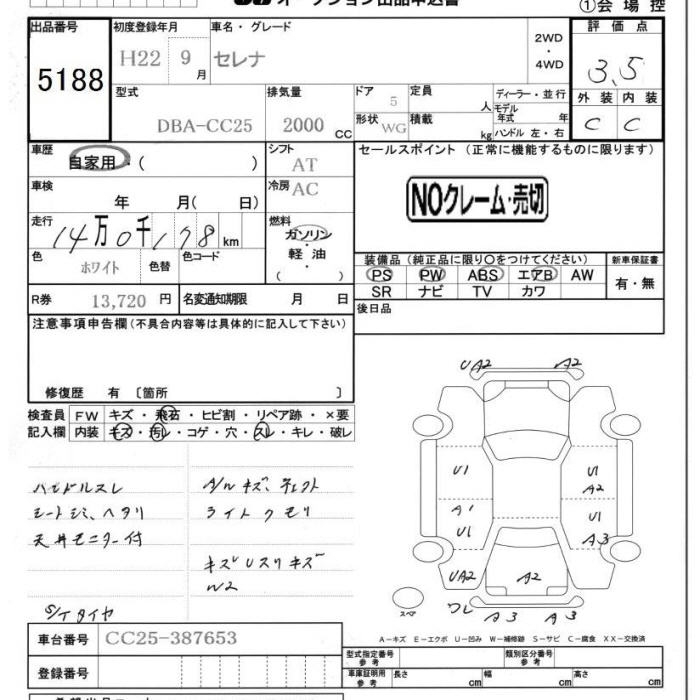 オークション出品申込書
①会場控
出品番号
5188
初度登録年月
H22 9月
車名・グレード
セレナ
2WD
・
4WD
評価点
3.5
外装 内装
C C
型式
DBA-CC25
排気量
2000 CC
ドア 5
形状 WG
定員 人
積載 kg
ディーラー・並行
モデル年式 年
ハンドル 左・右
車歴
自家用・( )
シフト
AT
車検
年 月( 日)
冷房
AC
走行
14万0千178km
燃料
ガソリン
・
軽油
( )
色
ホワイト
色替
色コード
R券 13,720 円
名変通知期限 月 日
セールスポイント (正常に機能するものに限ります)
NOクレーム・売切
装備品(純正品に限り○をつけてください)
PS PW ABS エアB AW
SR ナビ TV カワ
新車保証書
有・無
後日品
注意事項申告欄(不具合内容等は具体的に記入して下さい)
修復歴 有 〔箇所 〕
検査員記入欄
FW キズ・飛石・ヒビ割・リペア跡・×要
内装 キズ・汚レ・コゲ・穴・スレ・キレ・破レ
ハンドルスレ
シートシミ、ヘタリ
天井モニター付
S/Tタイヤ
ライトクモリ
W2
UA2 A2
U1 U1
A2
A1 U1
U1 A3
UA2 A2
ワレ A3 A3
スペア
A-キズ E-エクボ U-凹み W-補修跡 S-サビ C-腐食 XX-交換済
車台番号 CC25-387653
登録番号
型式指定番号 参考
類別区分番号 参考
車庫証明用 参考
長さ cm 幅 cm 高さ cm